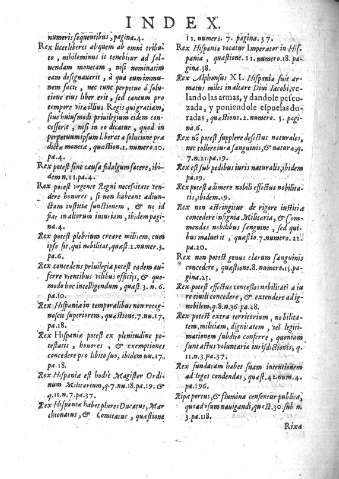 INDEX.
numeris sequentibus, pagina.4.
Rex licet liberet ab quem ab omni tributo, nihilominus is tenebitur ad soluendam
monetam, nisi nominatim
eam designauerit, à qua eum immunem
facit, nec tunc perpetuo à solutione
eius liber erit, sed tantum pro
tempore vitæ illius Regis
concesserit, nisi in eo dicatur, quòd in
perpetuum
dicta moneta, quæstion.1. numero.10.
pa.4.
Rex potest sine causa fidalgum facere, ibidem
n.11.pa.4.
Rex potest vrgente Regni necessitate vendere
honores, si non habeant adiunctam
iustitiæ functionem, & ne id
fiat in alterius iniuriam, ibidem pagina
4.
Rex potest plebeium creare militem, cum
ipse sit, qui nobilitat, quæst.2. numer.3.
pa.6.
Rex concedens priuilegia potest eadem auferre
vtentibus vilibus officijs, & quomodo
hoc intelligendum, quæst 3.n.6.
pa.10.
Rex Hispaniæ in temporalibus non recognoscit
superiorem, quæstione.7.nu.17.
pa.18.
Rex Hispaniæ potest ex plenitudine potestatis,
honores, & exemptiones
concedere pro libito suo, ibidem nu.17.
pa.18.
Rex Hispaniæ est hodie Magister Ordinum
Militarium, q.7.nu.18.pa.19.&
q.11.n.7.pa.37.
Rex Hispaniæ habet plures Ducatus, Marchionatus,
& Comitatus, quæstione
11. numer. 7. pagina.37.
Rex Hispaniæ vocatur Imperator in Hispania,
quæstione.11.numero.18.pagina.38.
Rex Alphonsus XI. Hispaniæ fuit armatus
miles in altare Diui Iacobi, velando
las armas, y dandole pescozada,
y poniendole espuelas doradas,
quæstion.2. numero. 5. pagina.6.
Rex nõ potest supplere defectus naturales,
nec tollere iura sanguinis, & naturæ q.
7.n.21.pa.19.
Rex est sub pedibus iuris naturalis, ibidem
pa.19.
Rex potest adimere nobili effectus nobilitatis,
ibidem.19.
Rex non astringitur de rigore iustitiæ
concedere insignia Militaria, & Commendas
nobilibus sanguine, sed quibus
maluerit, quæstio.7.numero.22.
pa.20.
Rex non potest genus clarum sanguinis
concedere, quæstione.8.numero.15.pagina.25.
Rex potest effectus concessos nobilitati a iure
ciuili concedere, & extendere ad ignobilem,
q.8.n.36.pa.28.
Rex potest extra territorium, nobilitatem,
militiam, dignitatem, vel legitimationem
subdito conferre, quoniam
sunt actus voluntariæ iurisdictionis, q.
11.n.3.pa.37.
Rex fundatam habet suam intentionem
ad leges condendas, quæst.42.num.4.
pa.196.
Ripa perueis, & flumina censentur publica,
quoad vsum nauigandi, quæst.30.sub n.
3.pa.118.
Rixa